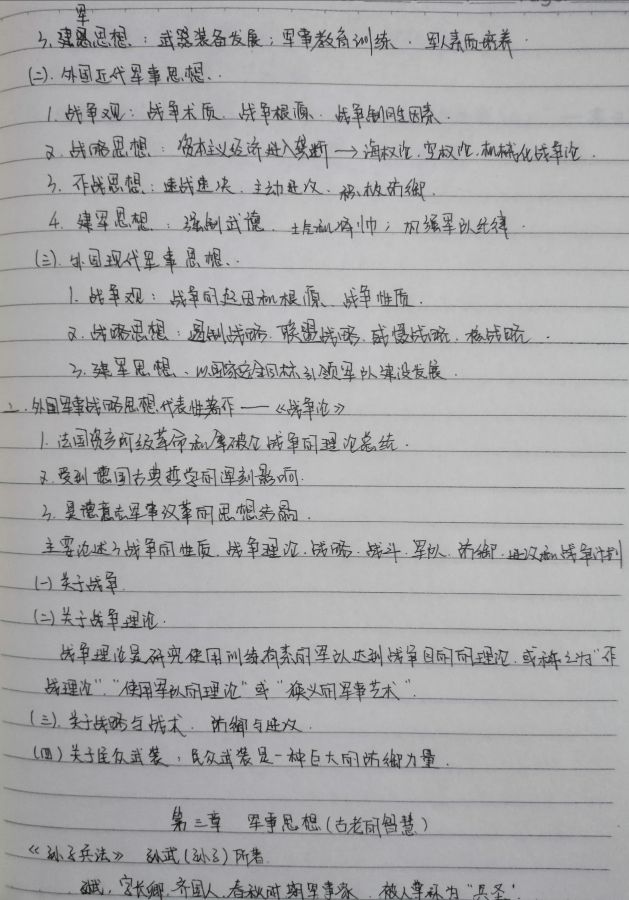 3. 建军思想：武器装备发展；军事教育训练、军人素质培养.
(二). 外国近代军事思想.
1. 战争观：战争本质、战争根源、战争制胜因素.
2. 战略思想：资本主义经济进入垄断→海权论、空权论、机械化战争论.
3. 作战思想：速战速决、主动进攻、积极防御.
4. 建军思想：强制武德、士兵和将帅；加强军队纪律.
(三). 外国现代军事思想.
1. 战争观：战争的起因和根源、战争性质.
2. 战略思想：遏制战略、联盟战略、威慑战略、核战略.
3. 建军思想、以国家安全目标引领军队建设发展.
二. 外国军事战略思想代表性著作——《战争论》
1. 法国资产阶级革命和拿破仑战争的理论总结.
2. 受到德国古典哲学的深刻影响.
3. 是德意志军事改革的思想结晶.
主要论述了战争的性质、战争理论、战略、战斗、军队、防御、进攻和战争计划
(一) 关于战争.
(二) 关于战争理论.
战争理论是研究使用训练有素的军队达到战争目的的理论，或称之为“作
战理论”、“使用军队的理论”或“狭义的军事艺术”.
(三). 关于战略与战术、防御与进攻.
(四) 关于民众武装：民众武装是一种巨大的防御力量.
第三章 军事思想(古老的智慧)
《孙子兵法》 孙武(孙子)所著.
孙武，字长卿，齐国人，春秋时期军事家，被人尊称为“兵圣”.